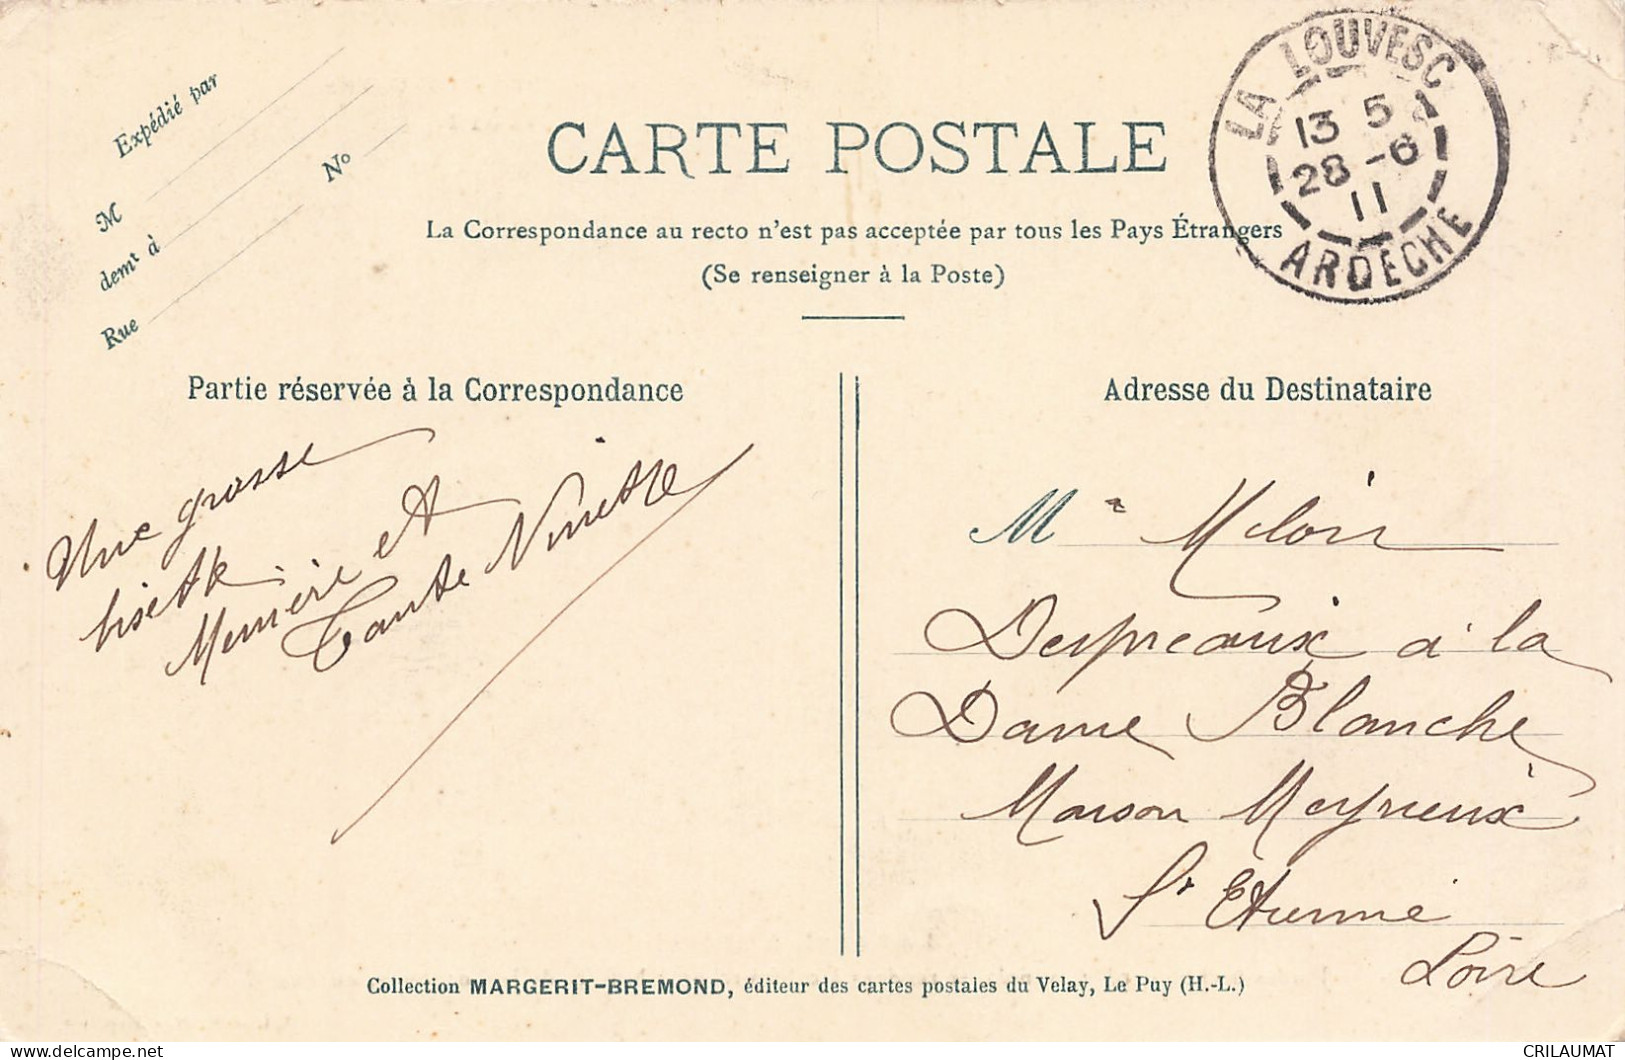 Expédié par
M
demt à
Rue
No
CARTE POSTALE
La Correspondance au recto n'est pas acceptée par tous les Pays Étrangers
(Se renseigner à la Poste)
LA LOUVESC
13 5
28 -6
11
ARDECHE
Partie réservée à la Correspondance
Une grosse
Memère et
Tante Ninette
Adresse du Destinataire
Despreaux à la
Dame Blanche
Maison Meyrieux
St Etienne
Loire
Collection MARGERIT-BREMOND, éditeur des cartes postales du Velay, Le Puy (H.-L.)
CRILAUMAT